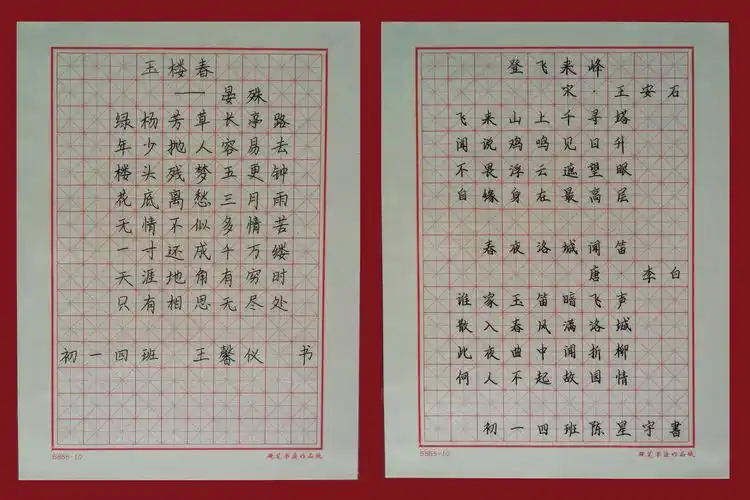 玉楼春
——晏殊
绿杨芳草长亭路
年少抛人容易去
楼头残梦五更钟
花底离愁三月雨
无情不似多情苦
一寸还成千万缕
天涯地角有穷时
只有相思无尽处
初一四班 王馨仪 书
6865-10 硬笔书法作品纸
登飞来峰
宋·王安石
飞来山上千寻塔
闻说鸡鸣见日升
不畏浮云遮望眼
自缘身在最高层
春夜洛城闻笛
唐·李白
谁家玉笛暗飞声
散入春风满洛城
此夜曲中闻折柳
何人不起故园情
初一四班陈星宇書
6865-10 硬笔书法作品纸